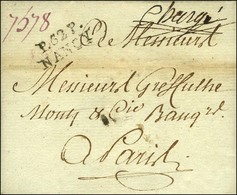 7678
Chargé
P.52.P.
NANCY
de Messieurs
Messieurs Greffulhe
Montz & Cie Banqrs
a Paris